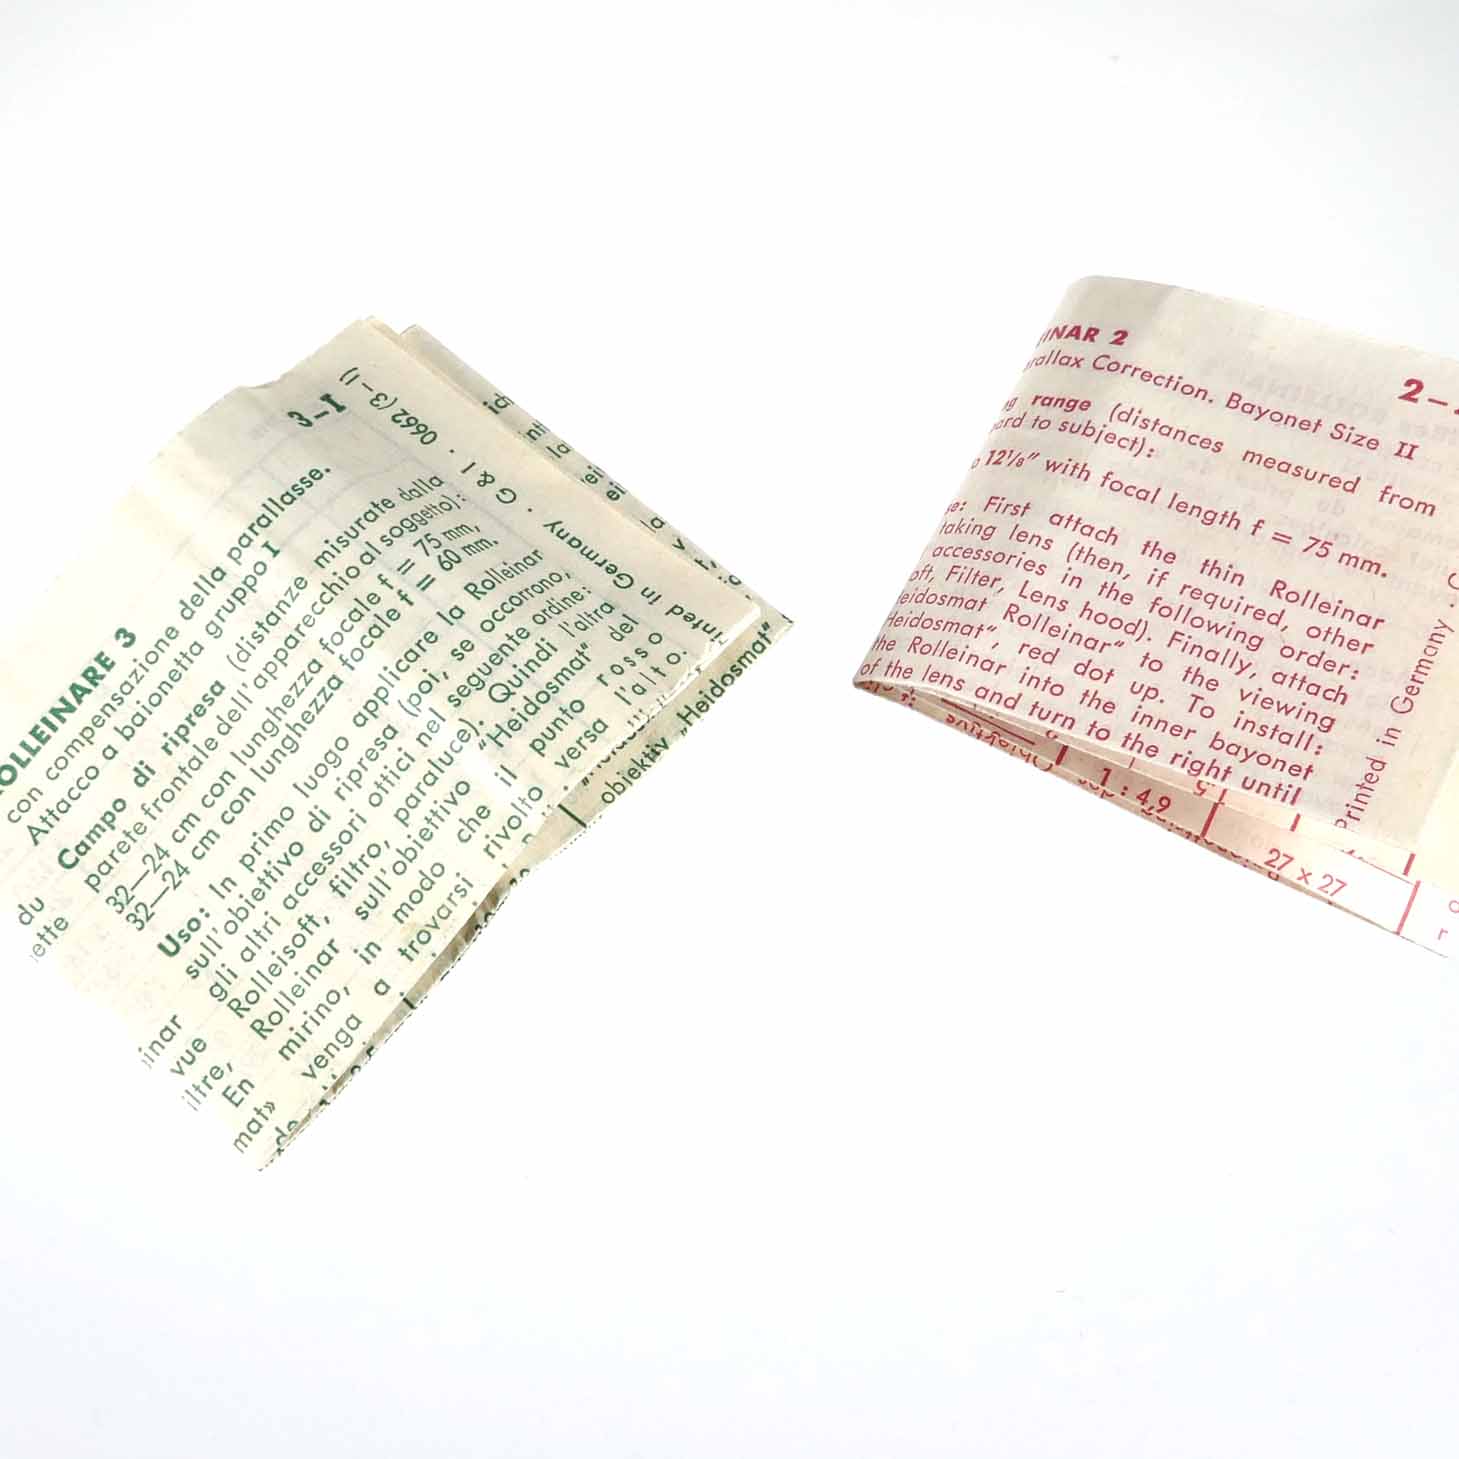 3–I
ROLLEINARE 3
con compensazione della parallasse.
Attacco a baionetta gruppo I
Campo di ripresa (distanze misurate dalla
parete frontale dell'apparecchio al soggetto):
32—24 cm con lunghezza focale f = 75 mm,
32—24 cm con lunghezza focale f = 60 mm.
Uso: In primo luogo applicare la Rolleinar
sull'obiettivo di ripresa (poi, se occorrono,
gli altri accessori ottici nel seguente ordine:
Rolleisoft, filtro, paraluce). Quindi l'altra
Rolleinar sull'obiettivo "Heidosmat" del
mirino, in modo che il punto rosso
venga a trovarsi rivolto versa l'alto.
inted in Germany · G & I · 0662 (3–I)
du
ette
inar
vue
iltre,
En
mat»
de
objektiv „Heidosmat“
INAR 2
2–
rallax Correction. Bayonet Size II
range (distances measured from
ard to subject):
12⅛″ with focal length f = 75 mm.
se: First attach the thin Rolleinar
taking lens (then, if required, other
accessories in the following order:
oft, Filter, Lens hood). Finally, attach
eidosmat Rolleinar“ to the viewing
Heidosmat“, red dot up. To install:
the Rolleinar into the inner bayonet
of the lens and turn to the right until
Printed in Germany ·
1 : 4,9
27 x 27